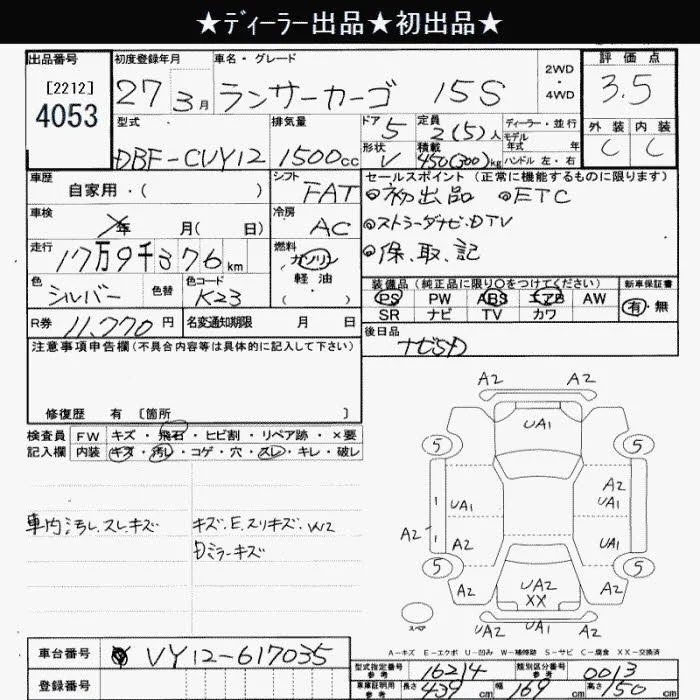 ★ディーラー出品★初出品★
出品番号
[2212]
4053
初度登録年月
27年3月
車名・グレード
ランサーカーゴ 15S
2WD
・
4WD
評価点
3.5
外装 内装
C C
型式
DBF-CVY12
排気量
1500cc
ドア 5
形状 V
定員 2(5)人
積載 450(300)kg
ディーラー・並行
モデル年式 年
ハンドル 左・右
車歴
自家用・( )
シフト
FAT
車検
年 月( 日)
冷房
AC
走行
17万9千376km
燃料
ガソリン
軽油
( )
色
シルバー
色替
色コード
K23
R券 11,770円
名変通知期限 月 日
セールスポイント (正常に機能するものに限ります)
初出品 ETC
ストラーダナビ・DTV
保、取、記
装備品(純正品に限り○をつけてください)
PS PW ABS エアB AW
SR ナビ TV カワ
新車保証書
有・無
後日品
ナビSD
注意事項申告欄(不具合内容等は具体的に記入して下さい)
修復歴 有 〔箇所 〕
検査員記入欄
FW キズ・飛石・ヒビ割・リペア跡・×要
内装 キズ・汚レ・コゲ・穴・スレ・キレ・破レ
車内汚レ.スレキズ
キズ.E.スリキズ.W2
Dミラーキズ
A2 A2
UA1
5 5
1 UA1 A2 UA1
A2 1 A2 UA1
5 5
A2 UA2 XX A2
UA2 UA1 A2
スペア
A-キズ E-エクボ U-凹み W-補修跡 S-サビ C-腐食 XX-交換済
車台番号 VY12-617035
登録番号
型式指定番号 参考 16214
類別区分番号 参考 0013
車庫証明用 参考 長さ 439cm 幅 169cm 高さ 150cm